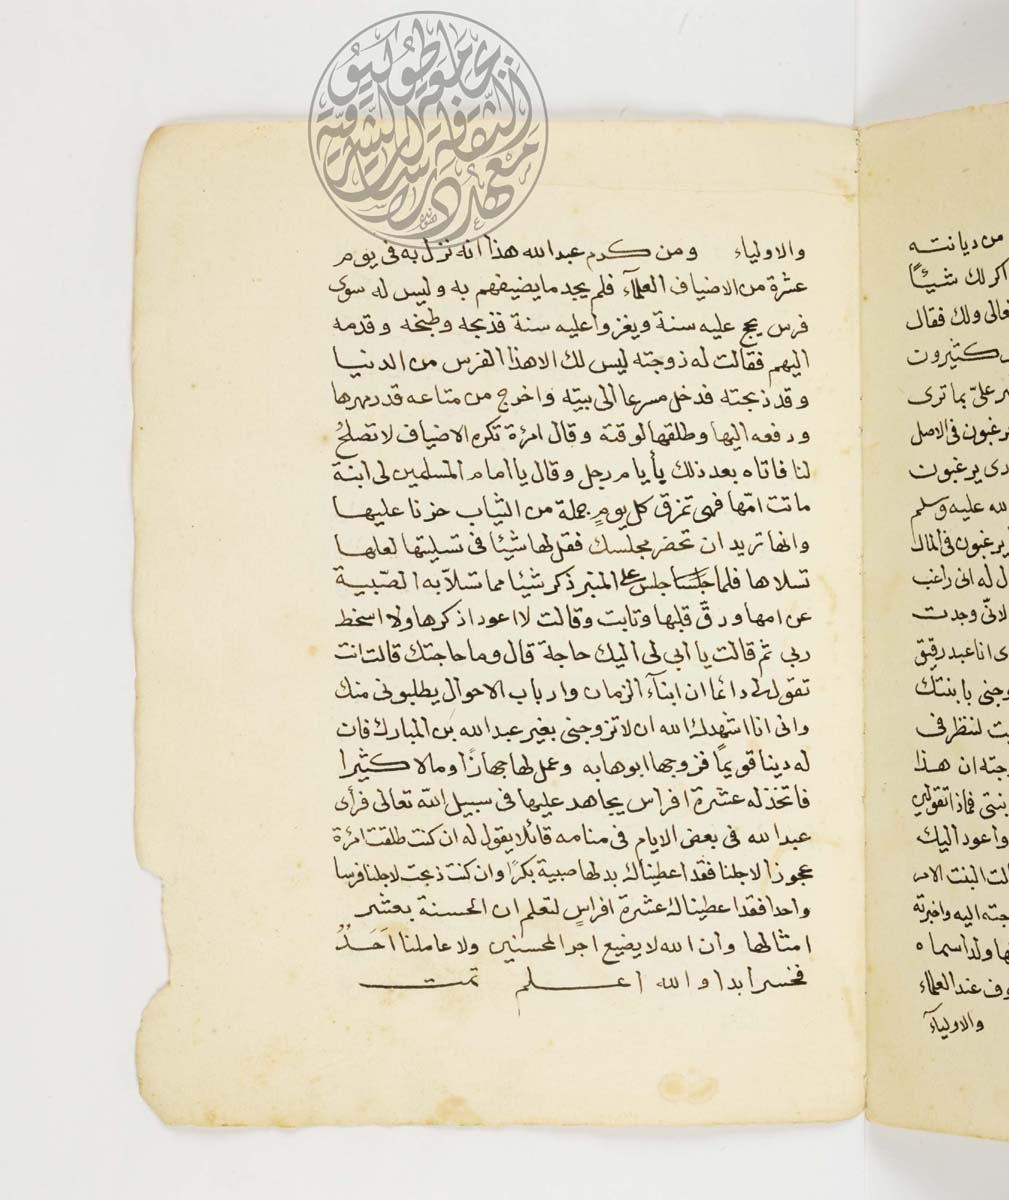 والاولياء ومن كدم عبدالله هذا انه نزل به فى يوم
عشرة من الاضياف العلمآء فلم يجد ما يضيفهم به وليس له سوى
فرس يحج عليه سنة ويغزوا عليه سنة فذبحه وطبخه وقدمه
اليهم فقالت له زوجته ليس لك الا هذا الفرس من الدنيا
وقد ذبحته فدخل مسرعا الى بيته واخرج من متاعه قدر مهرها
ودفعه اليها وطلقها لوقته وقال امرءة تكره الاضياف لا تصلح
لنا فاتاه بعد ذلك بأيام رجل وقال يا امام المسلمين لى ابنة
ماتت امّها فهى تمزق كل يومٍ جملة من الثياب حزنا عليها
وانها تريد ان تحضر مجلسك فقل لها شيئا فى تسليتها لعلها
تسلاها فلما جلس على المنبر ذكر شيئا مما تسلا به الصّبية
عن امها ورقّ قلبها وتابت وقالت لا اعود اذكرها ولا اسخط
ربي ثم قالت يا ابي لى اليك حاجة قال وما حاجتك قالت انت
تقول لى دائما ان ابنآء الزمان وارباب الاحوال يطلبونى منك
وانى انا اشهدك الله ان لا تزوجنى بغير عبدالله بن المبارك فان
له دينا قويمًا فزوجها ابوها به وعمل لها جهازًا ومالا كثيرا
فاتخذ له عشرة افراس يجاهد عليها فى سبيل الله تعالى فرأى
عبدالله فى بعض الايام فى منامه قائلا يقول له ان كنت طلقت امرءة
عجوزا لاجلنا فقد اعطيناك بدلها صبية بكرًا وان كنت ذبحت لاجلنا فرسا
واحدا فقد اعطيناك عشرة افراسٍ لتعلم ان الحسنة بعشر
امثالها وان الله لا يضيع اجر المحسنين ولا عاملنا احَدٌ
فخسر ابدا والله اعلم تمت
من ديانته
لك شيئًا
ولك فقال
كثيروت
علىّ بما ترى
يرغبون فى الاصل
يرغبون
الله عليه وسلم
يرغبون فى المال
له انى راغب
لانّى وجدت
انا عبد رقيق
بابنتك
لننظر فى
ان هذا
فماذا تقولين
واعود اليك
البنت الان
اليه واخبرته
ولد اسماه
عند العلماء
والاولياء